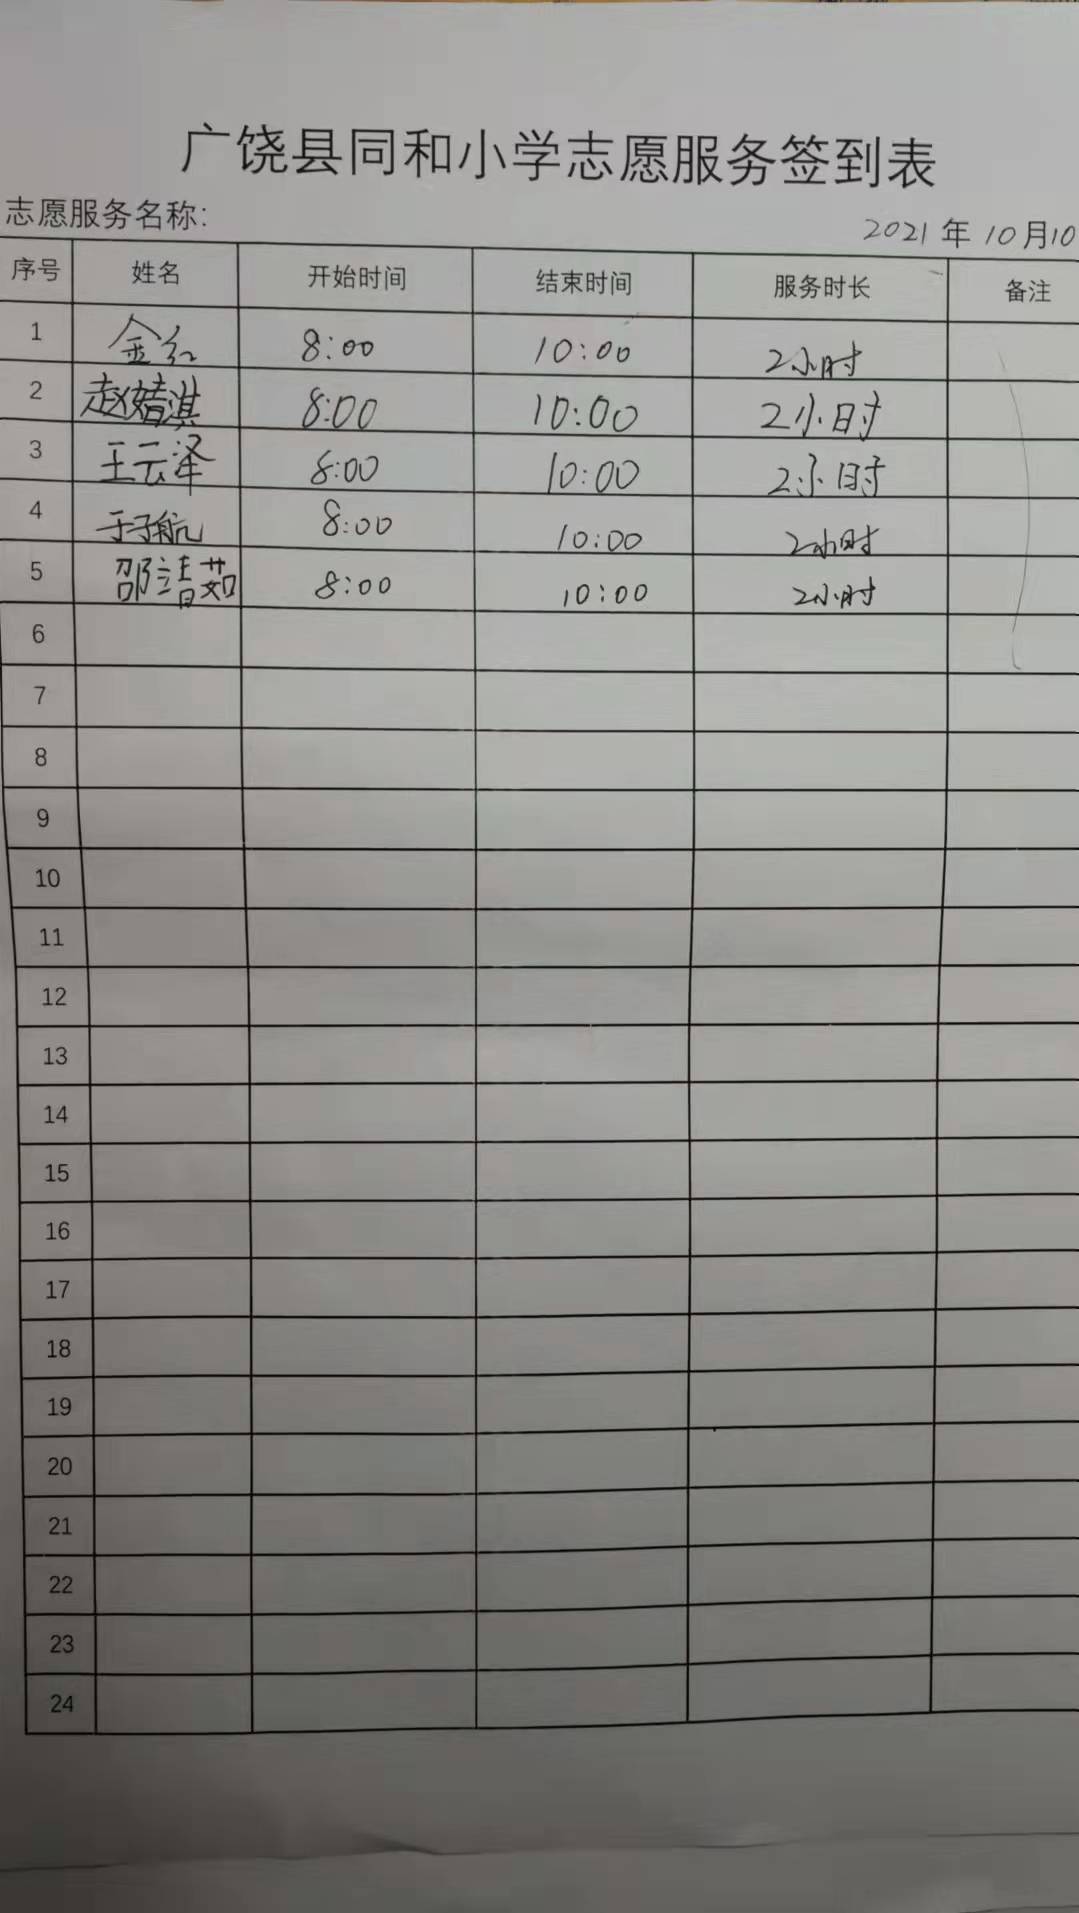 广饶县同和小学志愿服务签到表
志愿服务名称:
2021年10月10
序号 姓名 开始时间 结束时间 服务时长 备注
1 金红 8:00 10:00 2小时
2 赵婧淇 8:00 10:00 2小时
3 王云泽 8:00 10:00 2小时
4 于子航 8:00 10:00 2小时
5 邵靖茹 8:00 10:00 2小时
6
7
8
9
10
11
12
13
14
15
16
17
18
19
20
21
22
23
24